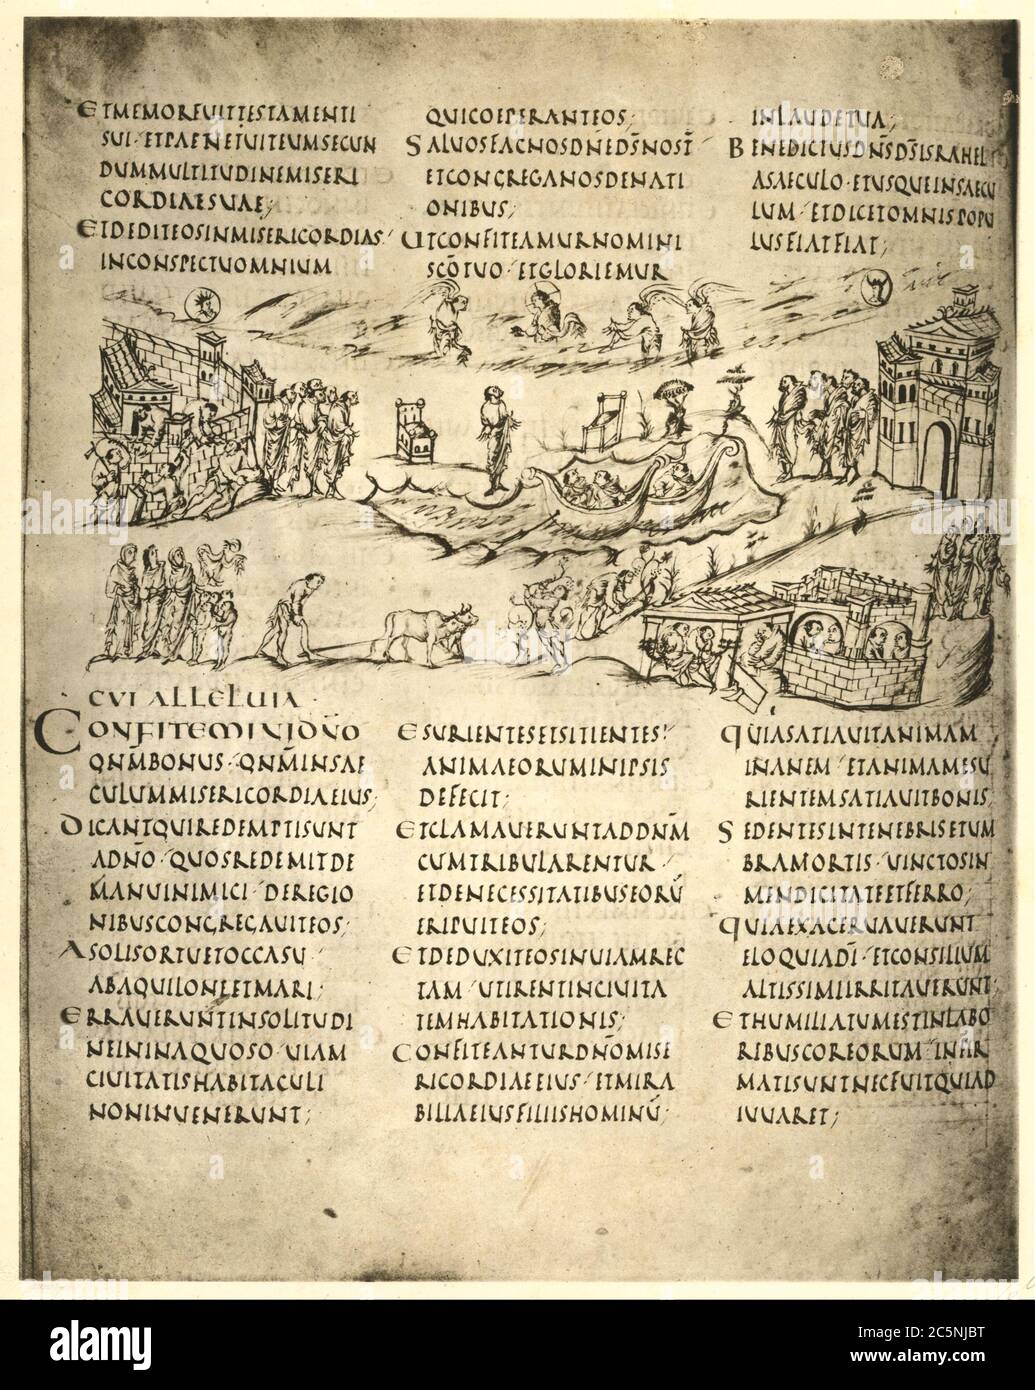 ETMEMORFUITTESTAMENTI
SUI·ETPAENETUITEUMSECUN
DUMMULTITUDINEMISERI
CORDIAESUAE;
ETDEDITEOSINMISERICORDIAS
INCONSPECTUOMNIUM
QUICOEPERANTEOS;
SALUOSFACNOSDN̄EDS̄NOST̄
ETCONGREGANOSDENATI
ONIBUS;
UTCONFITEAMURNOMINI
SCŌTUO·ETGLORIEMUR
INLAUDETUA;
BENEDICTUSDN̄SDS̄ISRAHEL
ASAECULO·ETUSQUEINSAECU
LUM·ETDICETOMNISPOPU
LUSFIATFIAT;
CVI ALLELUIA·
CONFITEMINIDNŌ
QNM̄BONUS·QNM̄INSAE
CULUMMISERICORDIAEIUS;
DICANTQUIREDEMPTISUNT
ADNŌ·QUOSREDEMITDE
MANUINIMICI·DEREGIO
NIBUSCONGREGAUITEOS;
ASOLISORTUETOCCASU·
ABAQUILONEETMARI;
ERRAUERUNTINSOLITUDI
NEININAQUOSO·UIAM
CIUITATISHABITACULI
NONINUENERUNT;
ESURIENTESETSITIENTES·
ANIMAEORUMINIPSIS
DEFECIT;
ETCLAMAUERUNTADDNM̄
CUMTRIBULARENTUR·
ETDENECESSITATIBUSEORŪ
ERIPUITEOS;
ETDEDUXITEOSINUIAMREC
TAM·UTIRENTINCIUITA
TEMHABITATIONIS;
CONFITEANTURDNŌMISE
RICORDIAEEIUS·ETMIRA
BILIAEIUSFILIISHOMINŪ;
QUIASATIAUITANIMAM
INANEM·ETANIMAMESU
RIENTEMSATIAUITBONIS;
SEDENTESINTENEBRISETUM
BRAMORTIS·UINCTOSIN
MENDICITATEETFERRO;
QUIAEXACERUAUERUNT
ELOQUIADĪ·ETCONSILIUM
ALTISSIMIIRRITAUERUNT;
ETHUMILIATUMESTINLABO
RIBUSCOREORUM·INFIR
MATISUNTNECFUITQUIAD
IUUARET;
alamy
Image ID: 2C5NJBT
www.alamy.com